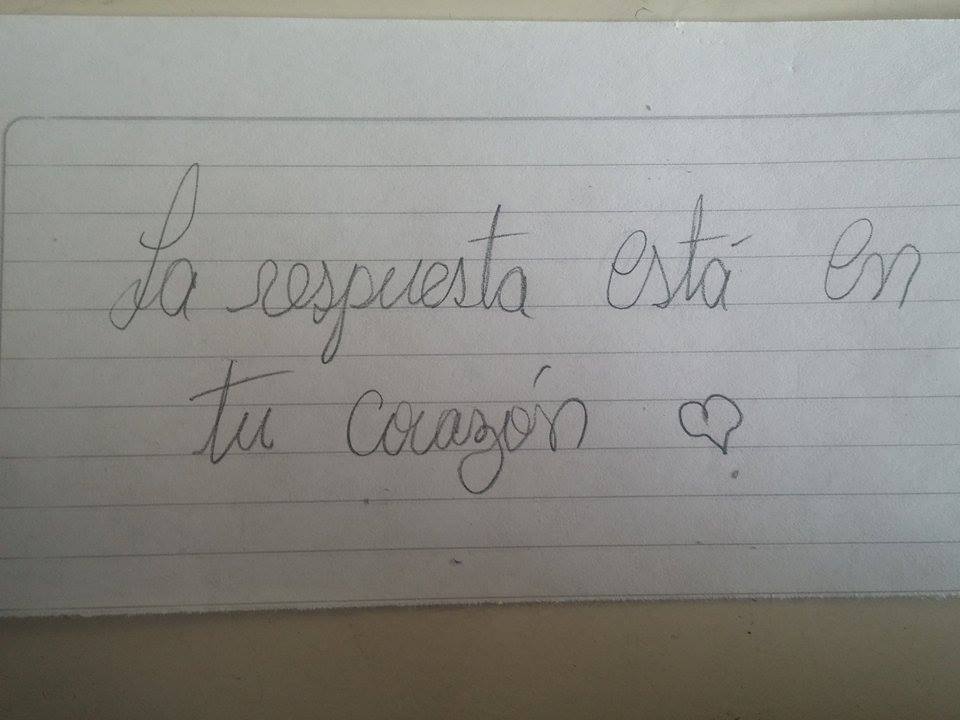 La respuesta está en
tu corazón ♡